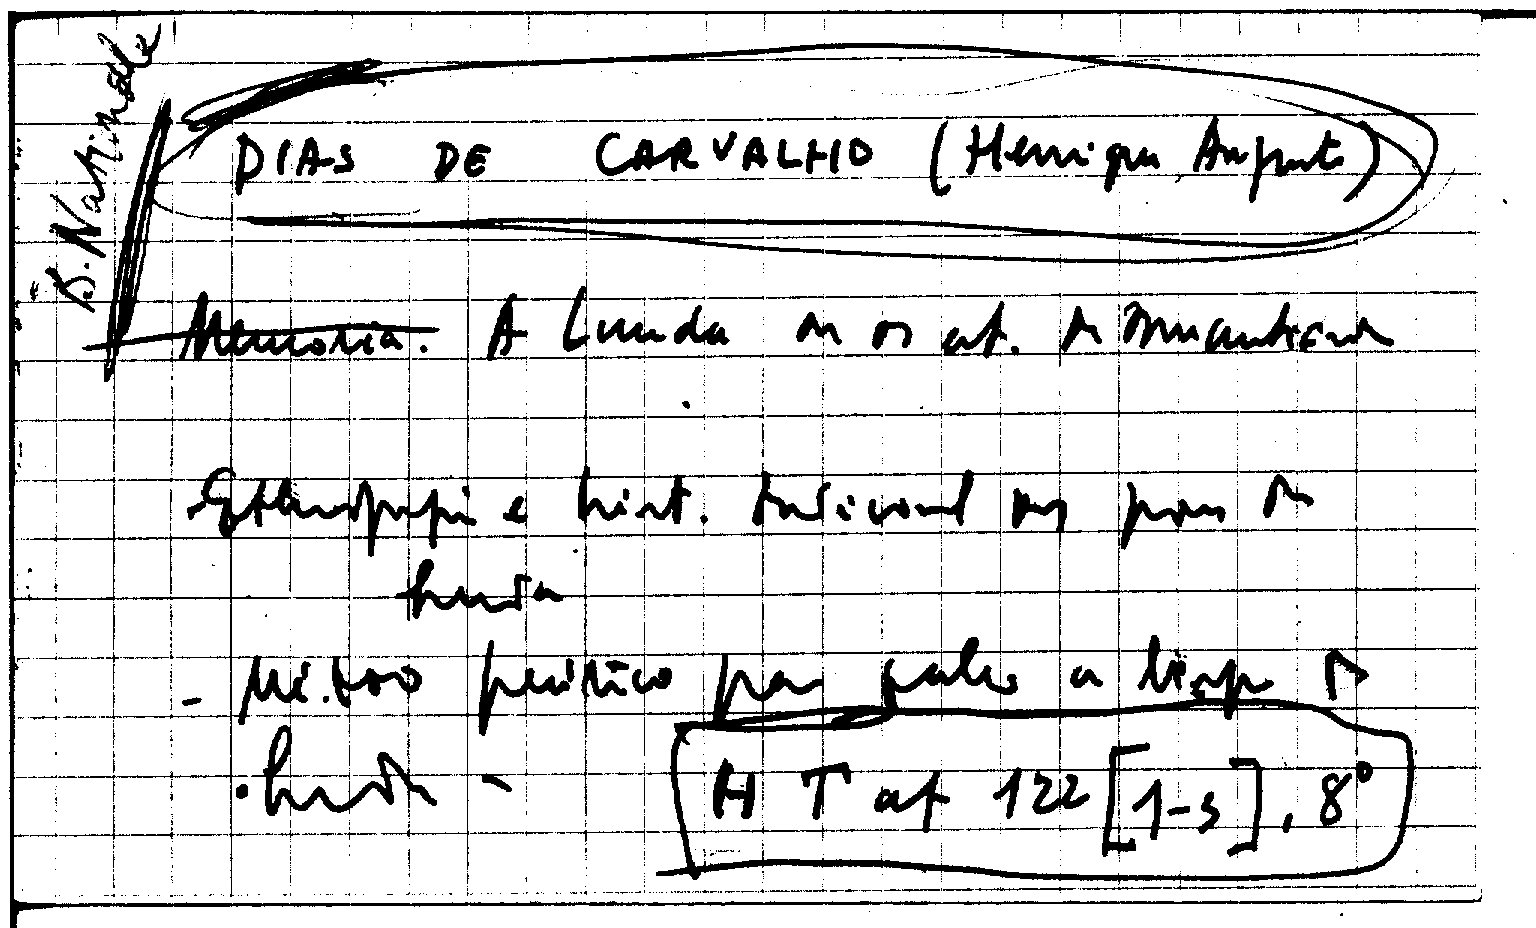 B. Nationale
DIAS DE CARVALHO (Henrique Augusto)
Memoria. A Lunda
Ethnographia e hist. tradicional dos povos da
Lunda
- Methodo pratico para fallar a lingua da
Lunda -
H T af 122 [1-3], 8°